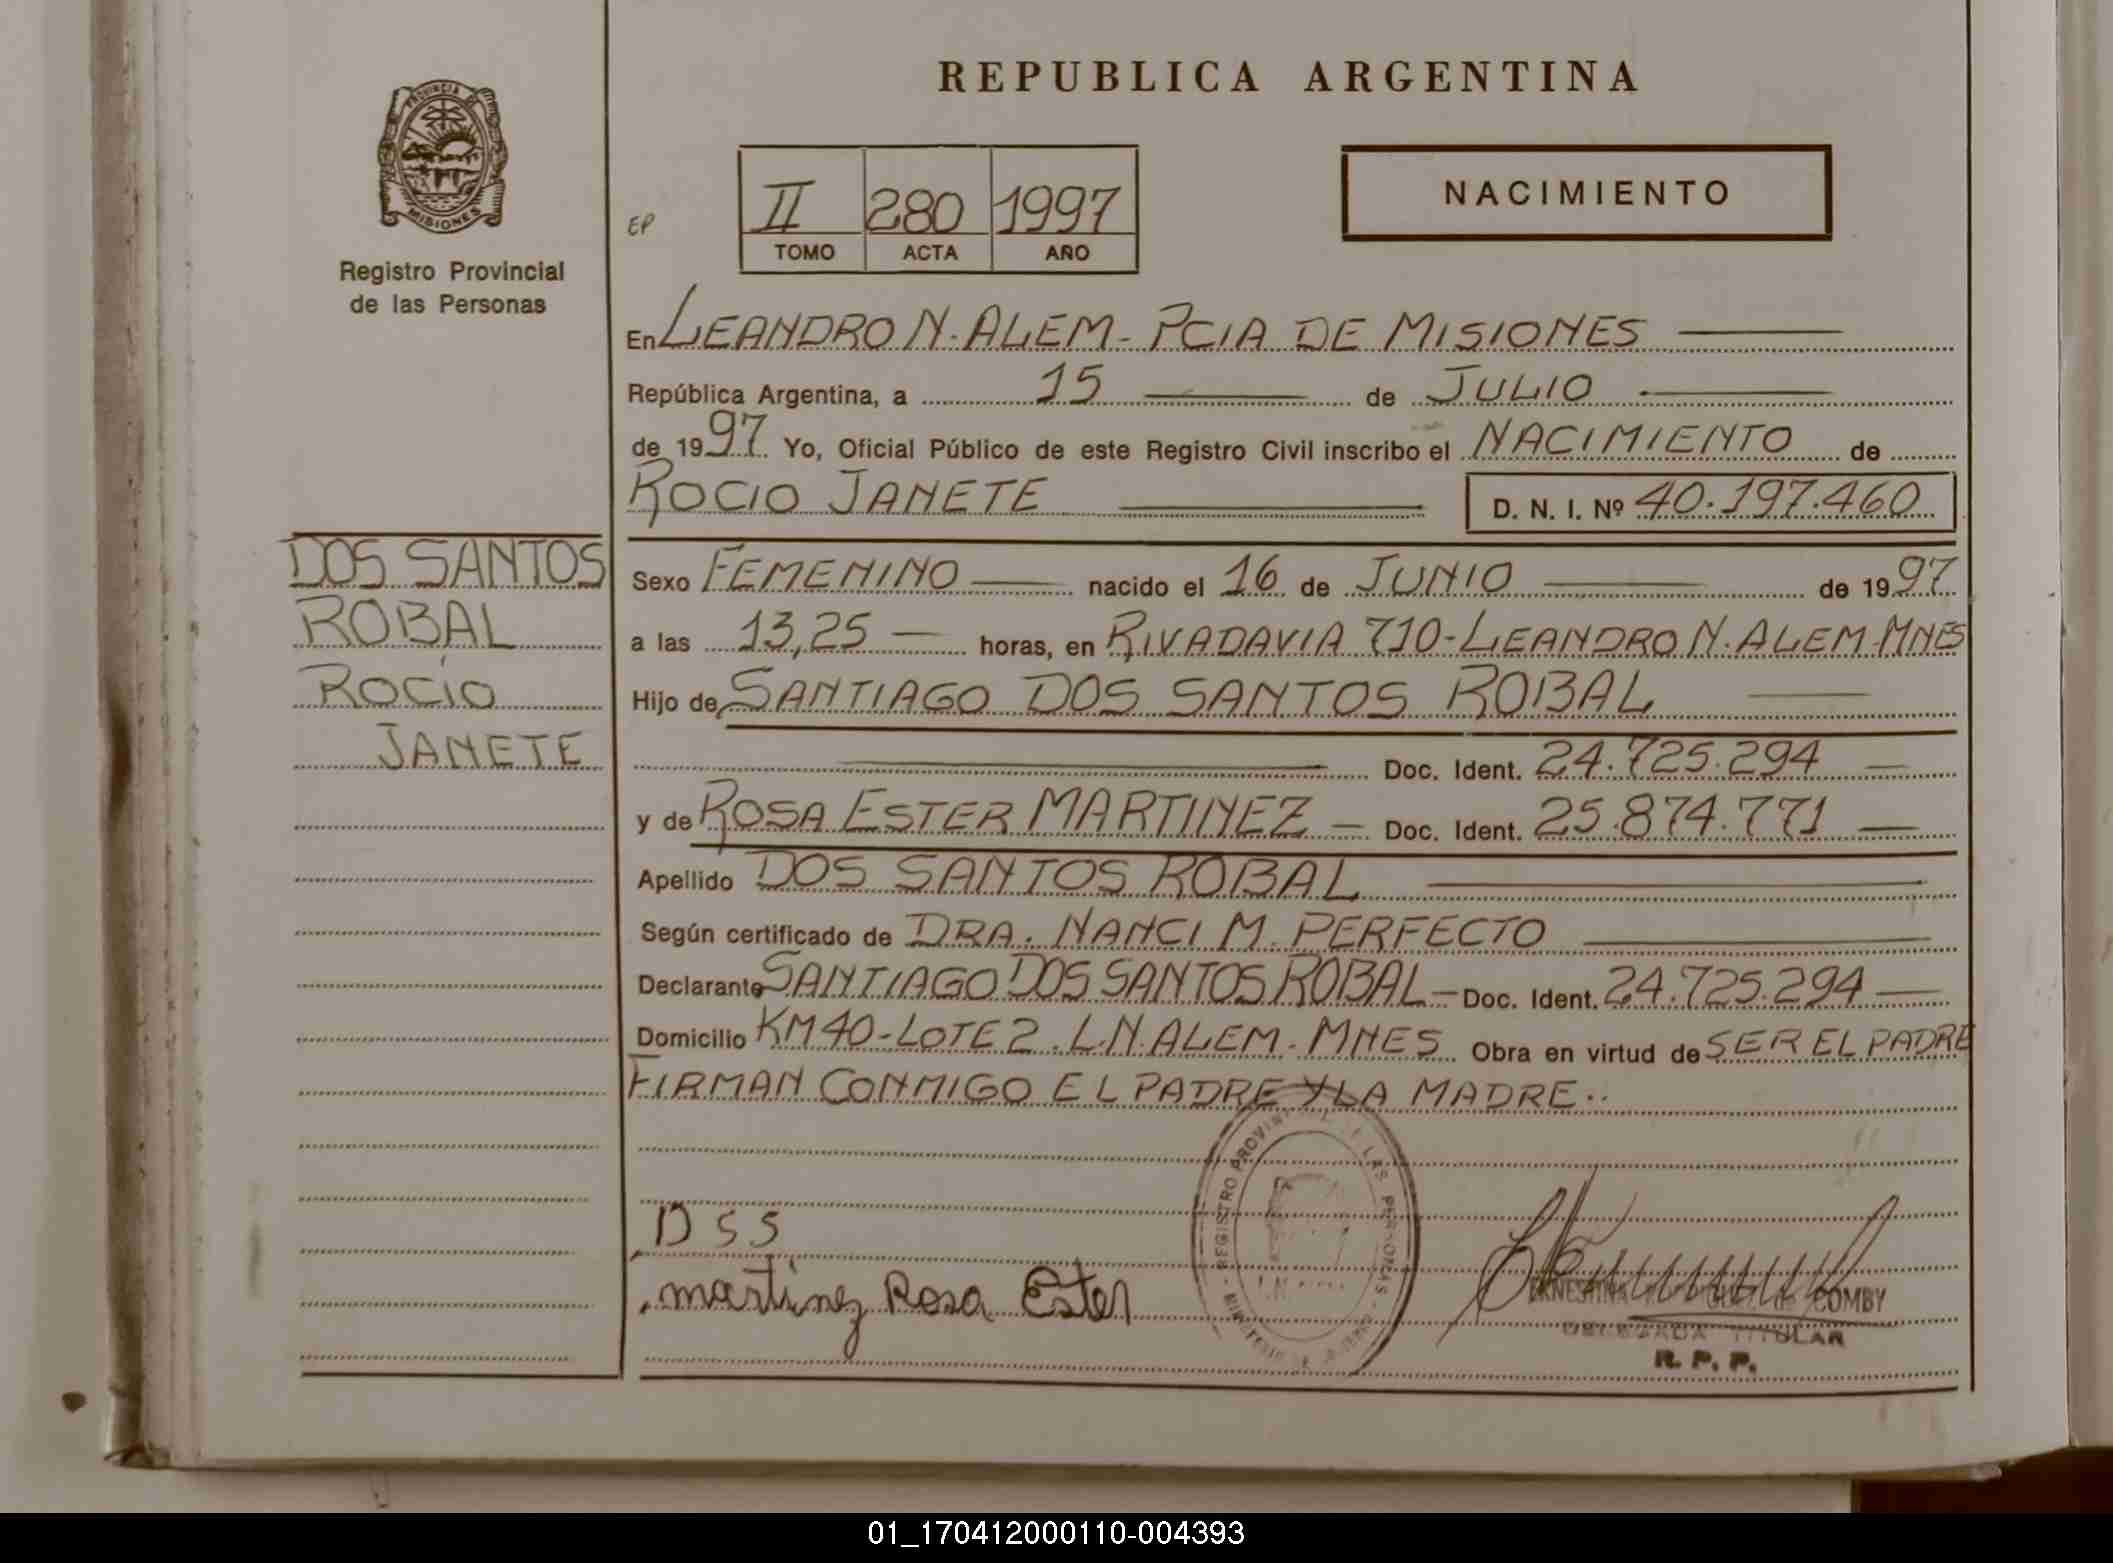 REPUBLICA ARGENTINA
PROVINCIA DE
MISIONES
Registro Provincial
de las Personas
EP
II 280 1997
TOMO ACTA AÑO
NACIMIENTO
En LEANDRO N. ALEM - PCIA DE MISIONES
República Argentina, a 15 de JULIO
de 1997 Yo, Oficial Público de este Registro Civil inscribo el NACIMIENTO de
ROCIO JANETE D. N. I. Nº 40.197.460
DOS SANTOS
ROBAL
ROCIO
JANETE
Sexo FEMENINO nacido el 16 de JUNIO de 1997
a las 13,25 horas, en RIVADAVIA 710 - LEANDRO N. ALEM - MNES
Hijo de SANTIAGO DOS SANTOS ROBAL
Doc. Ident. 24.725.294
y de ROSA ESTER MARTINEZ Doc. Ident. 25.874.771
Apellido DOS SANTOS ROBAL
Según certificado de DRA. NANCI M. PERFECTO
Declarante SANTIAGO DOS SANTOS ROBAL Doc. Ident. 24.725.294
Domicilio KM 40 - LOTE 2. L.N. ALEM - MNES Obra en virtud de SER EL PADRE
FIRMAN CONMIGO EL PADRE Y LA MADRE..
DSS
martinez Rosa Ester
REGISTRO PROVINCIAL DE LAS PERSONAS
ERNESTINA COMBY
DELEGADA TITULAR
R. P. P.
01_170412000110-004393